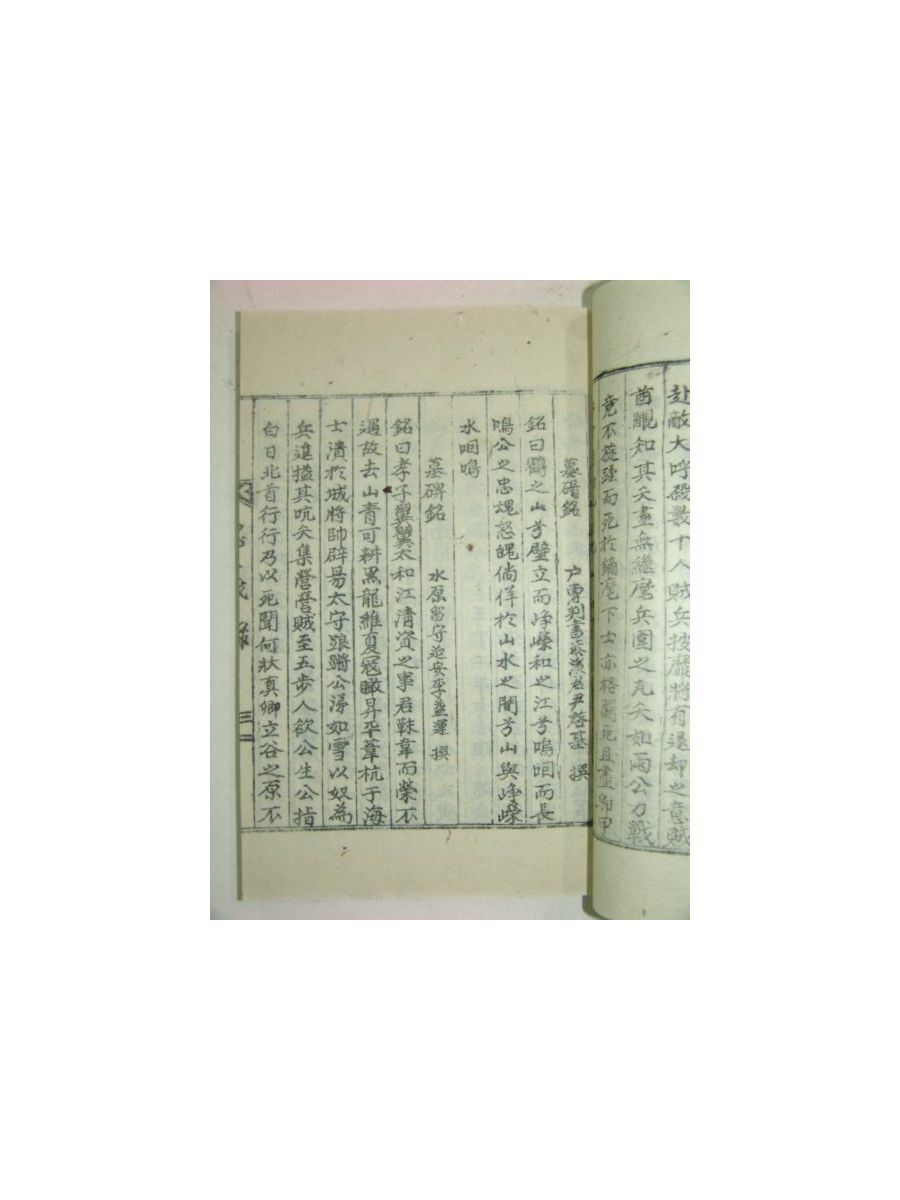 赴敵大呼殺最十人賊兵披靡將有退却之意賊
酋覵知其矢盡無繼麾兵圍之凡矢如雨公力戰
竟不旋踵而死於鏑麾下士亦格鬪死且盡
墓碣銘 戶曹判書 尹 撰
銘曰鶴之山兮壁立而崢嶸和之江兮嗚咽而長
鳴公之忠魂怒魄倘佯於山水之間兮山與崢嶸
水咽鳴
墓碑銘 水原留守延安李益運 撰
銘曰孝子翼翼太和江淸資之事君靺韋而榮不
遇故去山靑可耕黑龍維夏冦瞰昇平葦杭于海
士潰於城將帥辟易太守踉蹡公涕如雪以奴為
兵進搤其吭矢集營營賊至五步人欲公生公指
白日北首行行乃以死聞何狀真卿立谷之原不
三